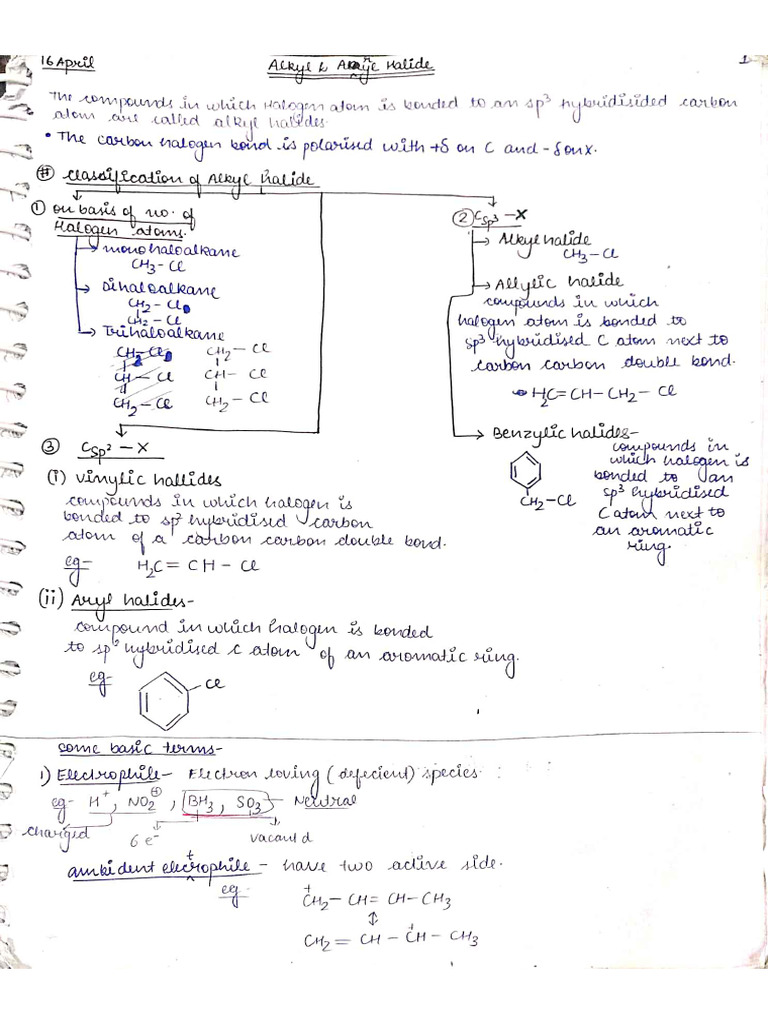 16 April
Alkyl & Aryl Halide
1
The compounds in which Halogen atom is bonded to an sp3 hybridisided carbon
atom are called alkyl halides.
• The carbon halogen bond is polarised with +δ on C and -δ on x.
# Classification of Alkyl halide
① on basis of no. of
Halogen atoms.
→ monohaloalkane
CH3 - Cl
→ Dihaloalkane
CH2 - Cl
|
CH2 - Cl
→ Trihaloalkane
CH2 - Cl
|
CH - Cl
|
CH2 - Cl
CH2 - Cl
|
CH - Cl
|
CH2 - Cl
② Csp3 - X
→ Alkyl halide
CH3 - Cl
→ Allylic halide
compounds in which
halogen atom is bonded to
sp3 hybridised C atom next to
carbon carbon double bond.
H2C=CH-CH2-Cl
→ Benzylic halides-
compounds in
which halogen is
bonded to an
sp3 hybridised
C atom next to
an aromatic
ring.
CH2-Cl
③ Csp2 - X
(i) Vinylic hallides
compounds in which halogen is
bonded to sp2 hybridised carbon
atom of a carbon carbon double bond.
eg- H2C = CH - Cl
(ii) Aryl halides-
compound in which halogen is bonded
to sp2 hybridised c atom of an aromatic ring.
eg- Cl
some basic terms-
1) Electrophile - Electron loving (defecient) species
eg- H+, NO2⊕, BH3, SO3 - Neutral
charged
6 e-
vacant d
ambident electrophile - have two active side.
eg-
+CH2 - CH = CH - CH3
⇕
CH2 = CH - +CH - CH3